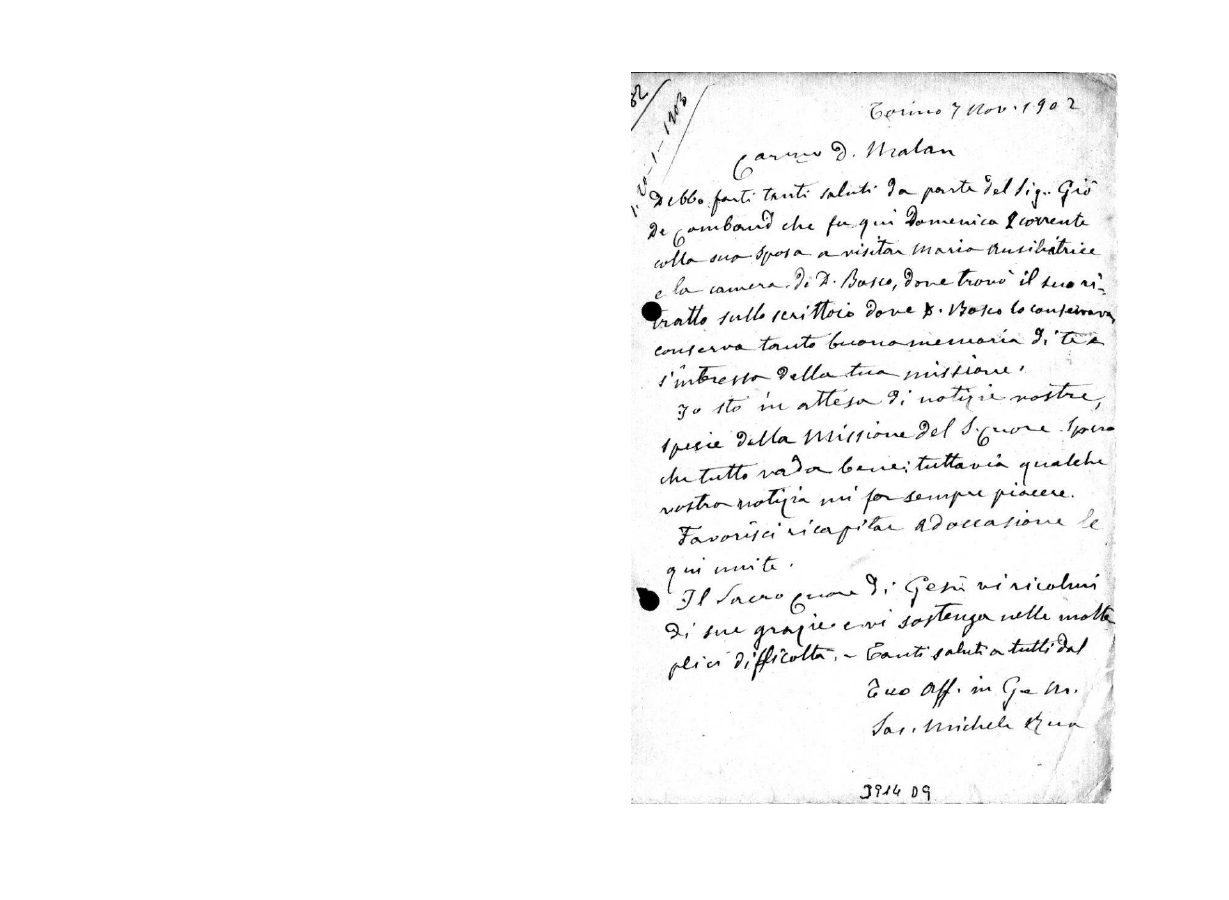 82
1. 20-1-1903
Torino 7 Nov. 1902
Carmo D. Malan
Debbo farti tanti saluti da parte del Sig. Giō
De Gombaud che fu qui Domenica 2 corrente
colla sua sposa a visitar Maria Ausiliatrice
e la camera di D. Bosco, dove trovò il suo ri-
tratto sullo scrittoio dove D. Bosco lo conservava,
conserva tanto buona memoria di te e
s'interessa della tua missione.
Io sto in attesa di notizie vostre,
specie della Missione del S. Cuore. Spero
che tutto vada bene; tuttavia qualche
vostra notizia mi fa sempre piacere.
Favorisci ricapitar ad occasione le
qui unite.
Il Sacro Cuore di Gesù vi ricolmi
di sue grazie e vi sostenga nelle molte
plici difficoltà. - Tanti saluti a tutti dal
Tuo Aff. in G. e M.
Sac. Michele Rua
3914 D9